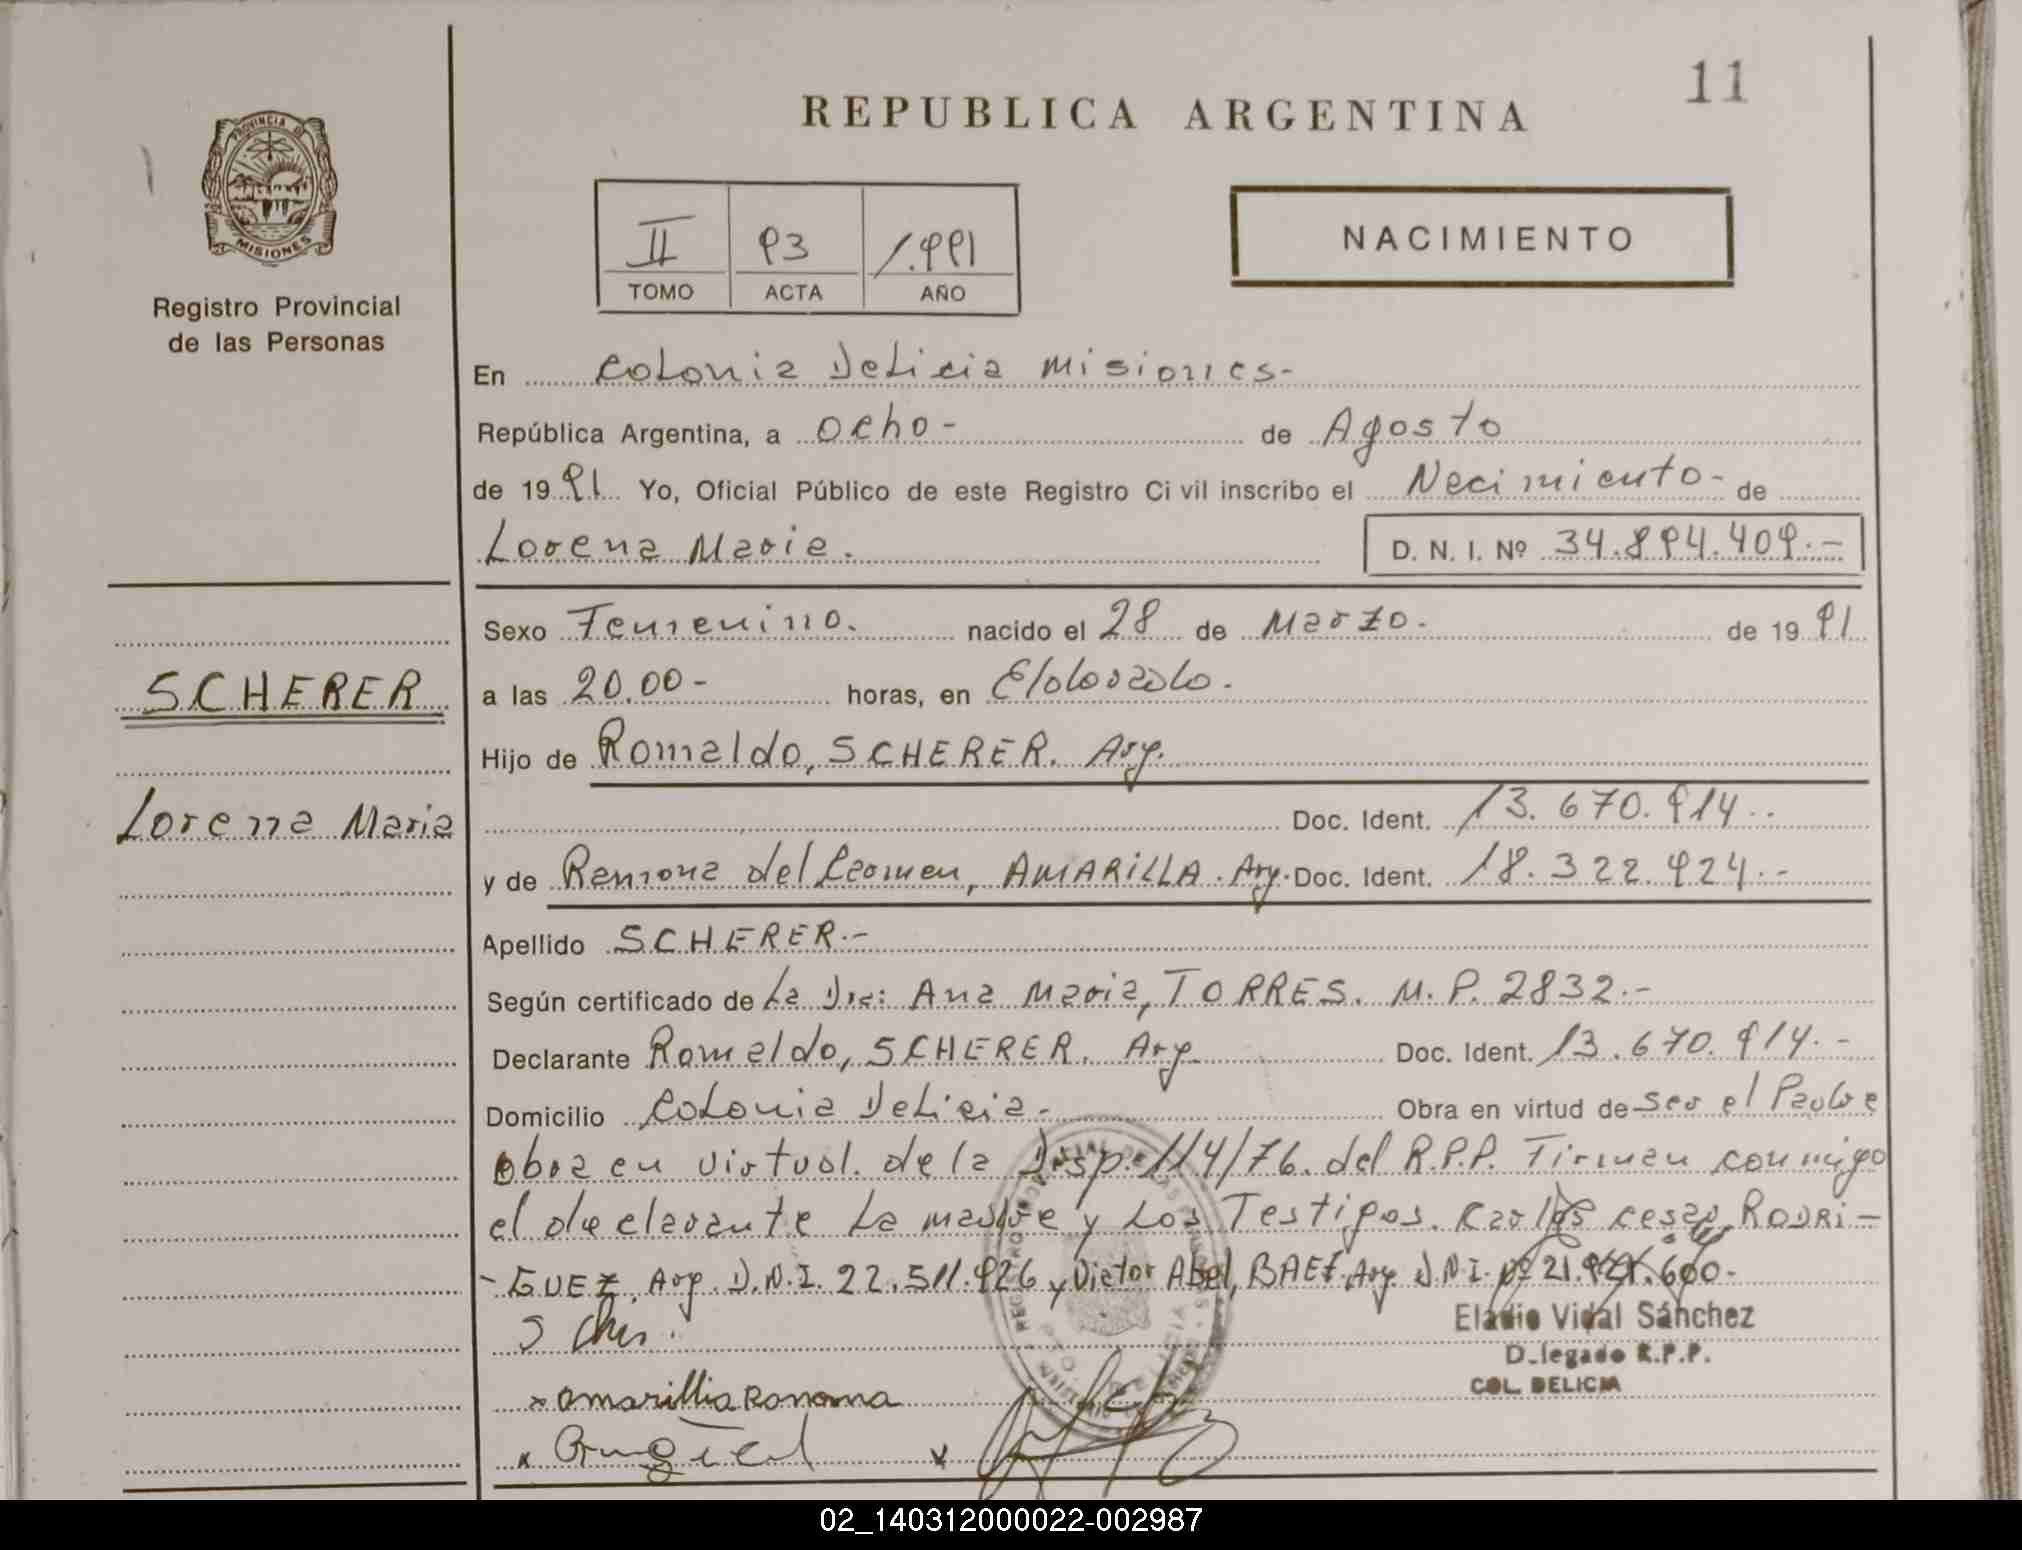 11
REPUBLICA ARGENTINA
PROVINCIA DE
MISIONES
Registro Provincial
de las Personas
II 93 1.991
TOMO ACTA AÑO
NACIMIENTO
En Colonia Delicia Misiones-
República Argentina, a Ocho- de Agosto
de 1991 Yo, Oficial Público de este Registro Civil inscribo el Nacimiento- de
Lorena Maria. D. N. I. Nº 34.894.409.-
Sexo Femenino. nacido el 28 de Marzo. de 1991
SCHERER
a las 20.00- horas, en Eldorado.
Hijo de Romaldo, SCHERER. Arg.
Lorena Maria
Doc. Ident. 13.670.914..
y de Ramona del Carmen, AMARILLA. Arg. Doc. Ident. 18.322.924.-
Apellido SCHERER.-
Según certificado de La Dra: Ana Maria, TORRES. M.P. 2832.-
Declarante Romaldo, SCHERER. Arg. Doc. Ident. 13.670.914.-
Domicilio Colonia Delicia- Obra en virtud de Ser el Padre
obra en virtud. de la Disp. 114/76. del R.P.P. Firman conmigo
el declarante La madre y Los Testigos. Carlos cesar, RODRI-
-GUEZ, Arg. D.N.I. 22.511.926 y Victor Abel, BAEZ. Arg. D.N.I. Nº 21.
Eladio Vidal Sánchez
D.legado R.P.P.
COL. DELICIA
x amarillia Ramona
02_140312000022-002987